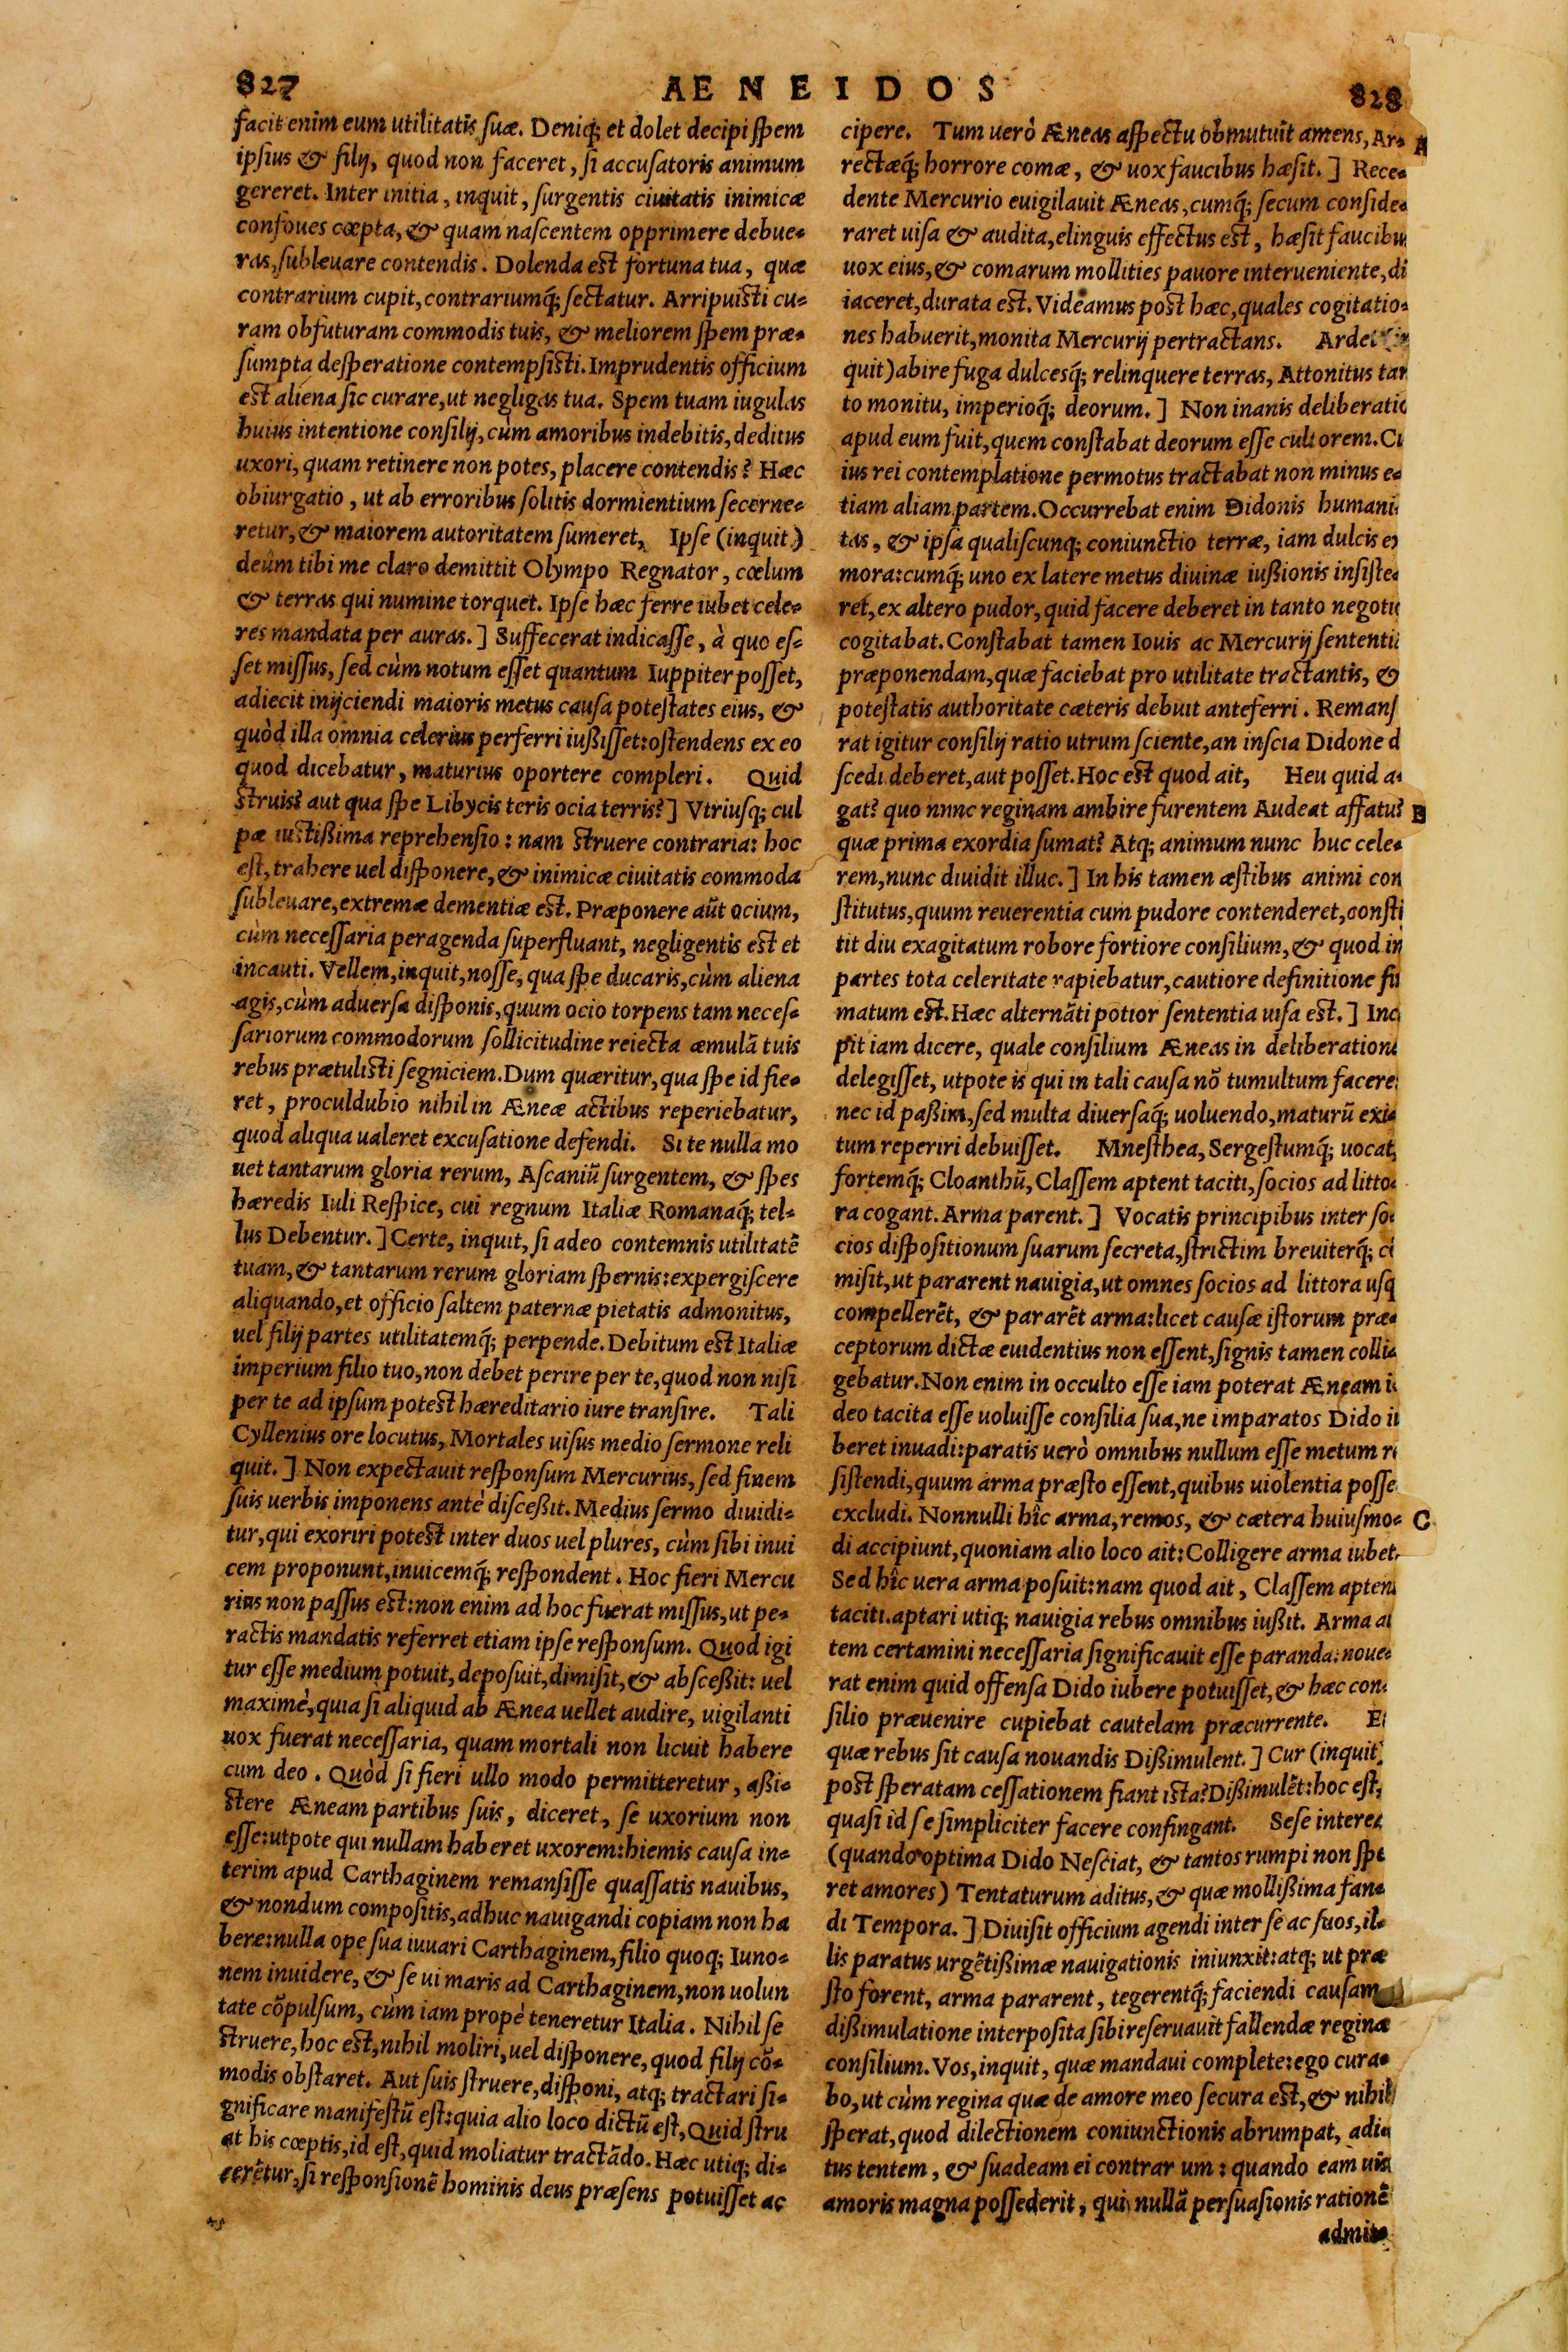 827
AENEIDOS
828
facit enim eum utilitatis ſuæ. Deniq; et dolet decipi ſpem
ipſius & filij, quod non faceret, ſi accuſatoris animum
gereret. Inter initia, inquit, ſurgentis ciuitatis inimicæ
confoues cœpta, & quam naſcentem opprimere debue-
ras, ſubleuare contendis. Dolenda est fortuna tua, quæ
contrarium cupit, contrariumq́; ſectatur. Arripuisti cu-
ram obfuturam commodis tuis, & meliorem ſpem præ-
ſumpta deſperatione contempſisti. Imprudentis officium
est aliena ſic curare, ut negligas tua. Spem tuam iugulas
huius intentione conſilij, cùm amoribus indebitis, deditus
uxori, quam retinere non potes, placere contendis? Hæc
obiurgatio, ut ab erroribus ſolitis dormientium ſecerne-
retur, & maiorem autoritatem ſumeret, Ipſe (inquit)
deûm tibi me claro demittit Olympo Regnator, cœlum
& terras qui numine torquet. Ipſe hæc ferre iubet cele-
res mandata per auras.] Suffecerat indicaſſe, à quo eſ-
ſet miſſus, ſed cùm notum eſſet quantum Iuppiter poſſet,
adiecit inijciendi maioris metus cauſa poteſtates eius, &
quòd illa omnia celerius perferri iußiſſet: oſtendens ex eo
quod dicebatur, maturius oportere compleri. Quid
struis? aut qua ſpe Libycis teris ocia terris?] Vtriuſq; cul
pæ iustißima reprehenſio: nam struere contraria: hoc
eſt, trahere uel diſponere, & inimicæ ciuitatis commoda
ſubleuare, extremæ dementiæ est. Præponere aūt ocium,
cùm neceſſaria peragenda ſuperfluant, negligentis est et
incauti. Vellem, inquit, noſſe, qua ſpe ducaris, cùm aliena
agis, cùm aduerſa diſponis, quum ocio torpens tam neceſ-
ſariorum commodorum ſollicitudine reiecta æmulā tuis
rebus prætulisti ſegniciem. Dum quæritur, qua ſpe id fie-
ret, proculdubio nihil in Æneæ actibus reperiebatur,
quod aliqua ualeret excuſatione defendi. Si te nulla mo
uet tantarum gloria rerum, Aſcaniū ſurgentem, & ſpes
hæredis Iuli Reſpice, cui regnum Italiæ Romanaq́; tel-
lus Debentur.] Certe, inquit, ſi adeo contemnis utilitatē
tuam, & tantarum rerum gloriam ſpernis: expergiſcere
aliquando, et officio ſaltem paternæ pietatis admonitus,
uel filij partes utilitatemq́; perpende. Debitum est Italiæ
imperium filio tuo, non debet perire per te, quod non niſi
per te ad ipſum potest hæreditario iure tranſire. Tali
Cyllenius ore locutus, Mortales uiſus medio ſermone reli
quit.] Non expectauit reſponſum Mercurius, ſed finem
ſuis uerbis imponens antè diſceßit. Medius ſermo diuidi-
tur, qui exoriri potest inter duos uel plures, cùm ſibi inui
cem proponunt, inuicemq́; reſpondent. Hoc fieri Mercu
rius non paſſus est: non enim ad hoc fuerat miſſus, ut pe-
ractis mandatis referret etiam ipſe reſponſum. Quod igi
tur eſſe medium potuit, depoſuit, dimiſit, & abſceßit: uel
maximè, quia ſi aliquid ab Ænea uellet audire, uigilanti
uox fuerat neceſſaria, quam mortali non licuit habere
cum deo. Quòd ſi fieri ullo modo permitteretur, aßi-
stere Æneam partibus ſuis, diceret, ſe uxorium non
eſſe: utpote qui nullam haberet uxorem: hiemis cauſa in-
terim apud Carthaginem remanſiſſe quaſſatis nauibus,
& nondum compoſitis, adhuc nauigandi copiam non ha
bere: nulla ope ſua iuuari Carthaginem, filio quoq; Iuno-
nem inuidere, & ſe ui maris ad Carthaginem, non uolun
tate cōpulſum, cùm iam propè teneretur Italia. Nihil ſe
struere, hoc est, nihil moliri, uel diſponere, quod filij cō-
modis obſtaret. Aut ſuis ſtruere, diſponi, atq; tractari ſi-
gnificare manifeſtū eſt: quia alio loco dictū eſt, Quid ſtru
at his cœptis, id eſt, quid moliatur tractādo. Hæc utiq; di-
cerētur, ſi reſponſionē hominis deus præſens potuiſſet ac
cipere. Tum uerò Æneas aſpectu obmutuit amens, Ar- A
rectæq́; horrore comæ, & uox faucibus hæſit.] Rece-
dente Mercurio euigilauit Æneas, cumq́; ſecum conſide-
raret uiſa & audita, elinguis effectus est, hæſit faucibu
uox eius, & comarum mollities pauore interueniente, di
iaceret, durata est. Videamus post hæc, quales cogitatio-
nes habuerit, monita Mercurij pertractans. Ardet
quit) abire fuga dulcesq́; relinquere terras, Attonitus tan
to monitu, imperioq́; deorum.] Non inanis deliberatio
apud eum fuit, quem conſtabat deorum eſſe cultorem. Cu
ius rei contemplatione permotus tractabat non minus e-
tiam aliam partem. Occurrebat enim Didonis humani-
tas, & ipſa qualiſcunq; coniunctio terræ, iam dulcis ex
mora: cumq́; uno ex latere metus diuinæ iußionis inſiſte-
ret, ex altero pudor, quid facere deberet in tanto negotio
cogitabat. Conſtabat tamen Iouis ac Mercurij ſententiā
præponendam, quæ faciebat pro utilitate tractantis, &
poteſtatis authoritate cæteris debuit anteferri. Remanſ
rat igitur conſilij ratio utrum ſciente, an inſcia Didone d
ſcedi deberet, aut poſſet. Hoc est quod ait, Heu quid a-
gat? quo nnnc reginam ambire furentem Audeat affatu? B
quæ prima exordia ſumat? Atq; animum nunc huc cele-
rem, nunc diuidit illuc.] In his tamen æſtibus animi con
ſtitutus, quum reuerentia cum pudore contenderet, conſti
tit diu exagitatum robore fortiore conſilium, & quod in
partes tota celeritate rapiebatur, cautiore definitione fir
matum est. Hæc alternāti potior ſententia uiſa est.] Inci
pit iam dicere, quale conſilium Æneas in deliberatione
delegiſſet, utpote is qui in tali cauſa nō tumultum facere
nec id paßim, ſed multa diuerſaq́; uoluendo, maturū exi-
tum reperiri debuiſſet. Mneſthea, Sergeſtumq́; uocat,
fortemq́; Cloanthū, Claſſem aptent taciti, ſocios ad litto-
ra cogant. Arma parent.] Vocatis principibus inter ſo-
cios diſpoſitionum ſuarum ſecreta, ſtrictim breuiterq́; cō
miſit, ut pararent nauigia, ut omnes ſocios ad littora uſq
compellerēt, & pararēt arma: licet cauſæ iſtorum præ-
ceptorum dictæ euidentius non eſſent, ſignis tamen colli-
gebatur. Non enim in occulto eſſe iam poterat Æneam i-
deo tacita eſſe uoluiſſe conſilia ſua, ne imparatos Dido iu
beret inuadi: paratis uerò omnibus nullum eſſe metum re
ſiſtendi, quum arma præſto eſſent, quibus uiolentia poſſe
excludi. Nonnulli hîc arma, remos, & cætera huiuſmo- C
di accipiunt, quoniam alio loco ait: Colligere arma iubet,
Sed hîc uera arma poſuit: nam quod ait, Claſſem aptent
taciti. aptari utiq; nauigia rebus omnibus iußit. Arma au
tem certamini neceſſaria ſignificauit eſſe paranda: noue-
rat enim quid offenſa Dido iubere potuiſſet, & hæc con-
ſilio præuenire cupiebat cautelam præcurrente. Et
quæ rebus ſit cauſa nouandis Dißimulent.] Cur (inquit)
post ſperatam ceſſationem fiant ista? Dißimulēt: hoc eſt,
quaſi id ſe ſimpliciter facere confingant. Seſe interea
(quando optima Dido Neſciat, & tantos rumpi non ſpe
ret amores) Tentaturum aditus, & quæ mollißima fan-
di Tempora.] Diuiſit officium agendi inter ſe ac ſuos, il-
lis paratus urgētißimæ nauigationis iniunxit: atq; ut præ
ſto forent, arma pararent, tegerentq́; faciendi cauſam
dißimulatione interpoſita ſibi reſeruauit fallendæ reginæ
conſilium. Vos, inquit, quæ mandaui complete: ego cura-
bo, ut cùm regina quæ de amore meo ſecura est, & nihil
ſperat, quod dilectionem coniunctionis abrumpat, adi-
tus tentem, & ſuadeam ei contrar um: quando eam uis
amoris magna poſſederit, qui nullā perſuaſionis rationē
admit-